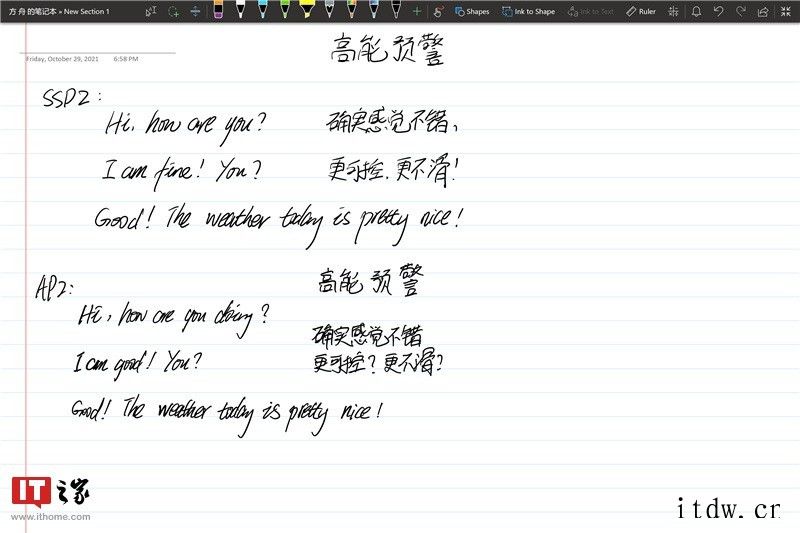 方舟的笔记本 » New Section 1
Shapes
Ink to Shape
Ink to Text
Ruler
高能预警
Friday, October 29, 2021 6:58 PM
SSP2:
Hi, how are you? 确实感觉不错,
I am fine! You? 更可控,更不滑!
Good! The weather today is pretty nice!
AP2: 高能预警
Hi, how are you doing?
确实感觉不错
I am good! You? 更可控?更不滑?
Good! The weather today is pretty nice!
IT之家
www.ithome.com
itdw.cr